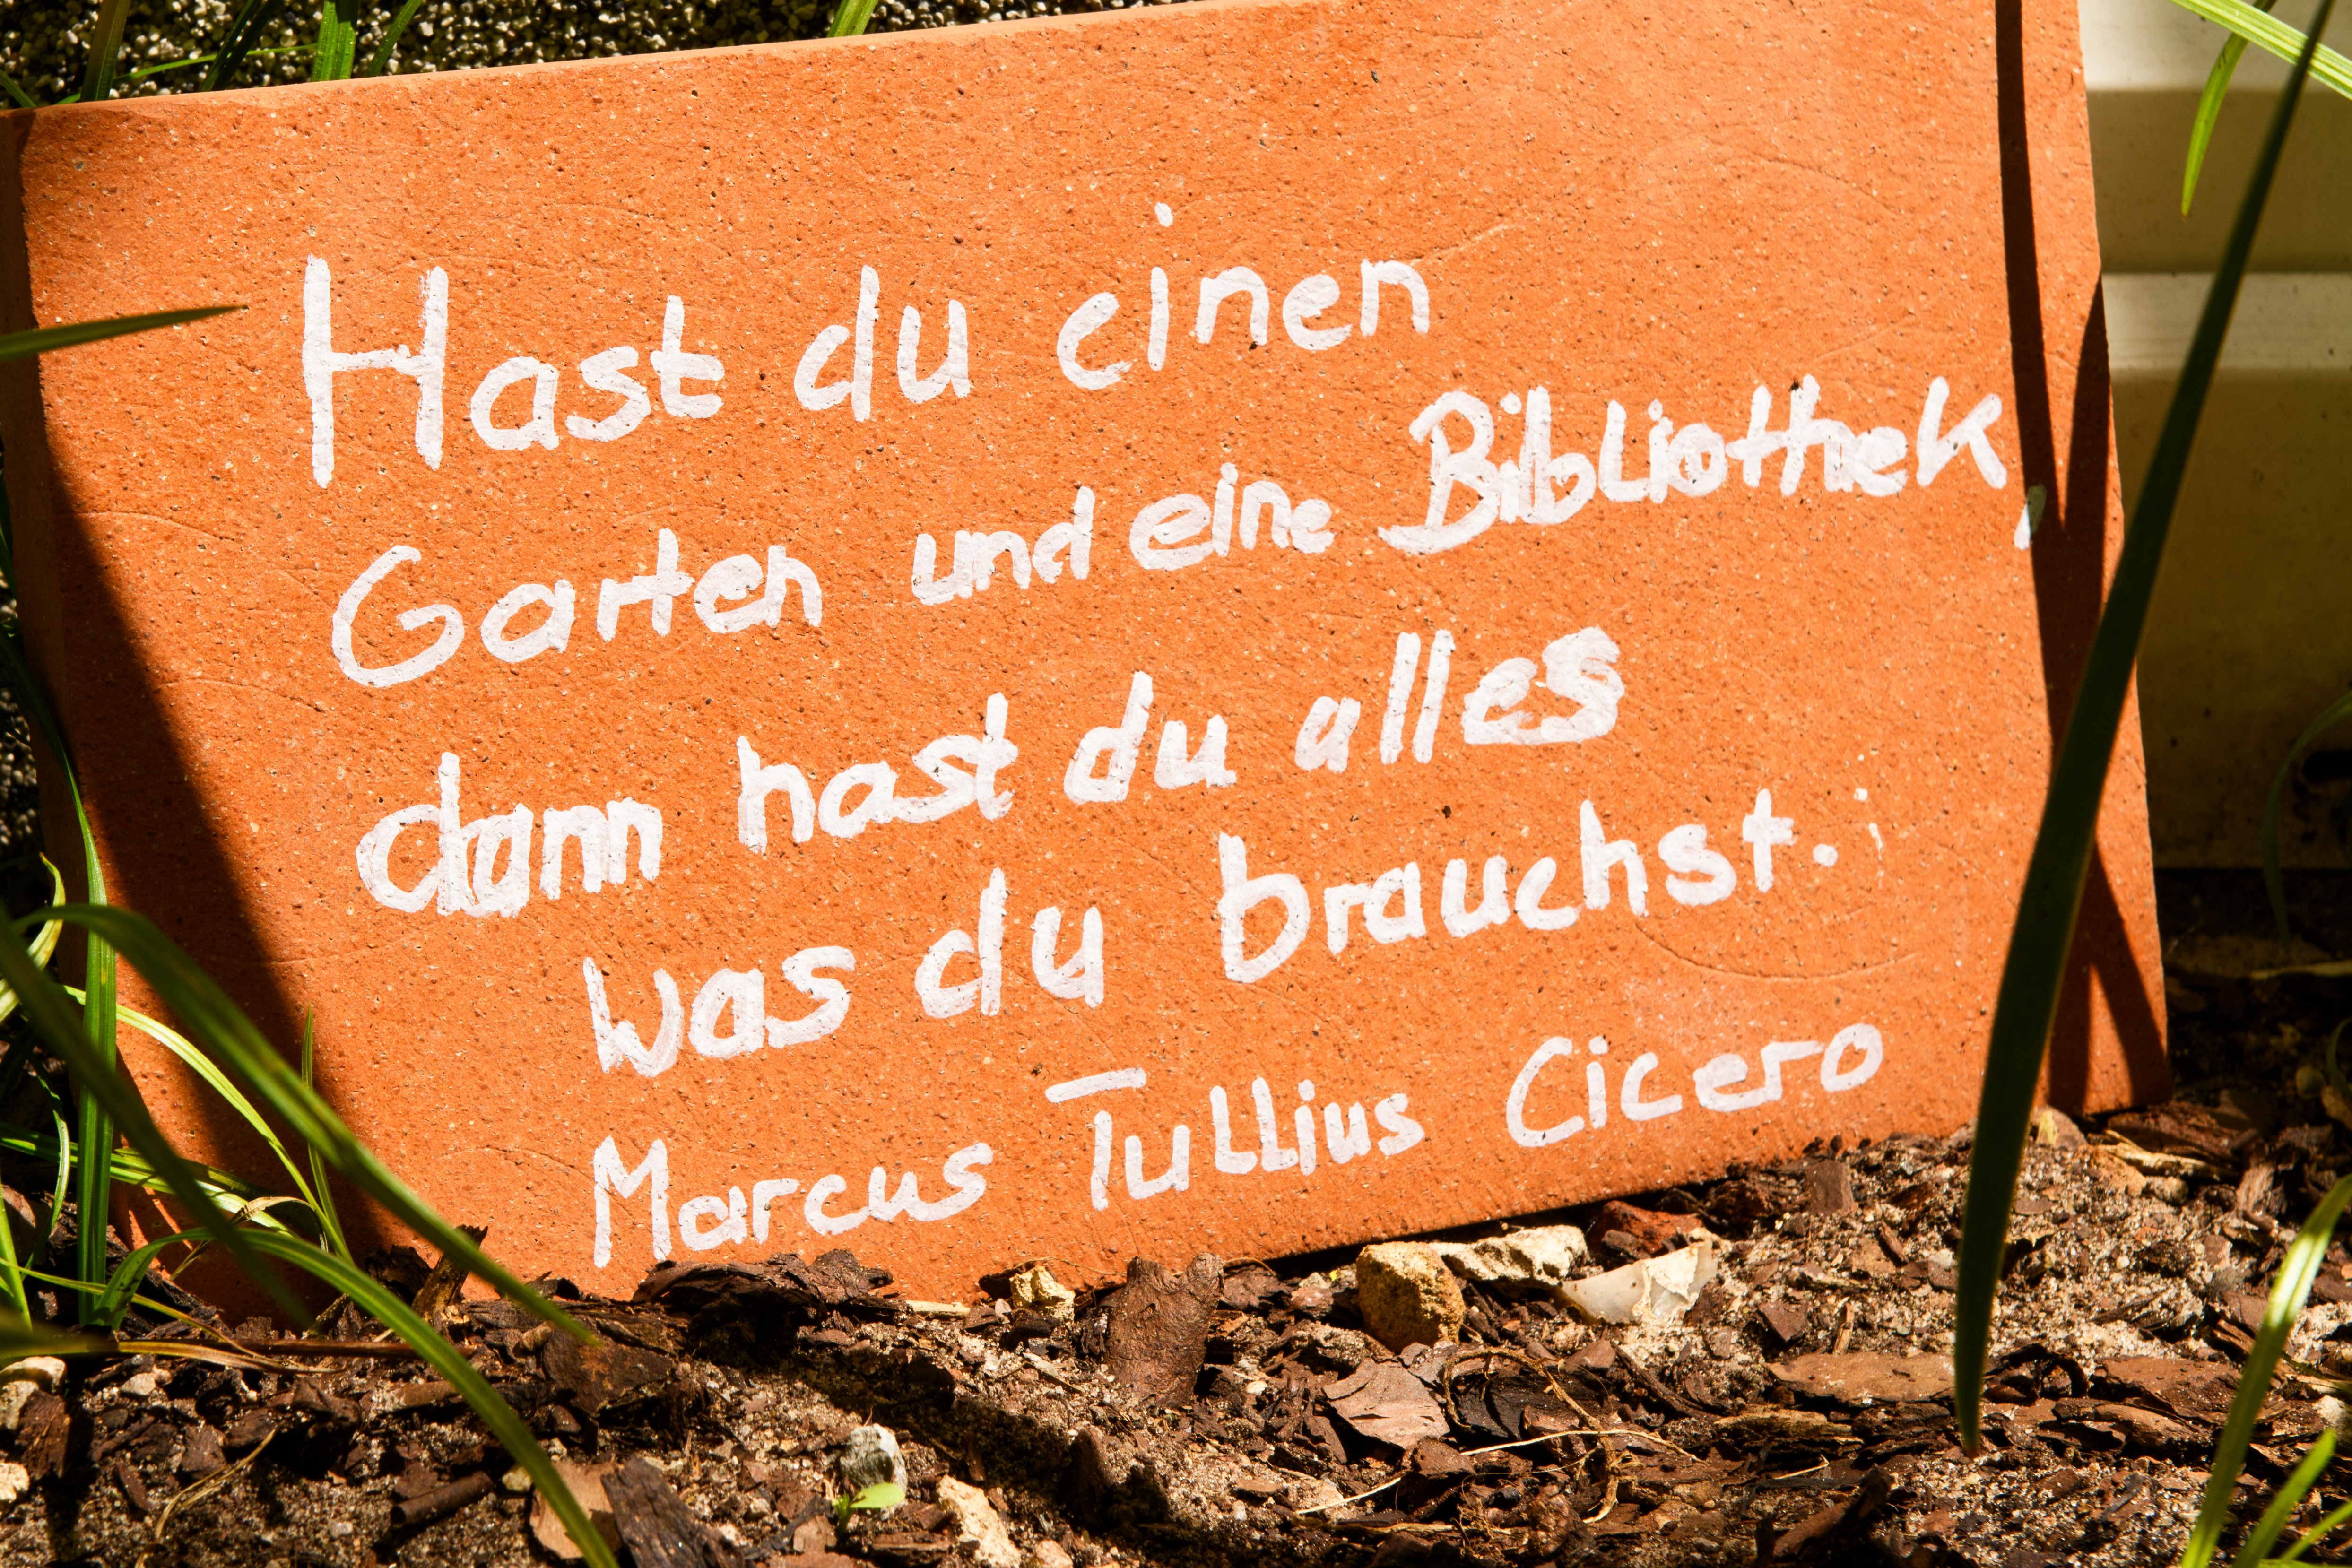 Hast du einen
Garten und eine Bibliothek,
dann hast du alles
was du brauchst.
Marcus Tullius Cicero